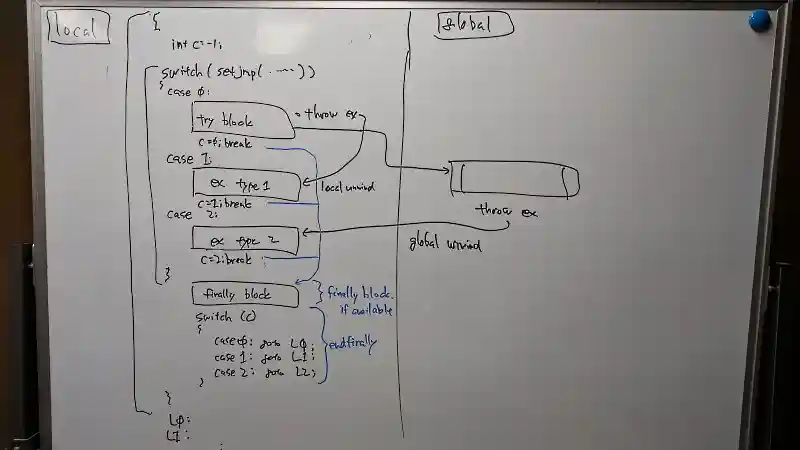 local
{
int c=-1;
switch(setjmp(.....))
{
case 0:
try block
throw ex
c=0;break
case 1:
ex type 1
local unwind
c=1;break
case 2:
ex type 2
c=2;break
}
finally block
finally block.
if available
switch (c)
{
case 0: goto L0;
case 1: goto L1;
case 2: goto L2;
}
endfinally
}
L0:
L1:
global
throw ex
global unwind